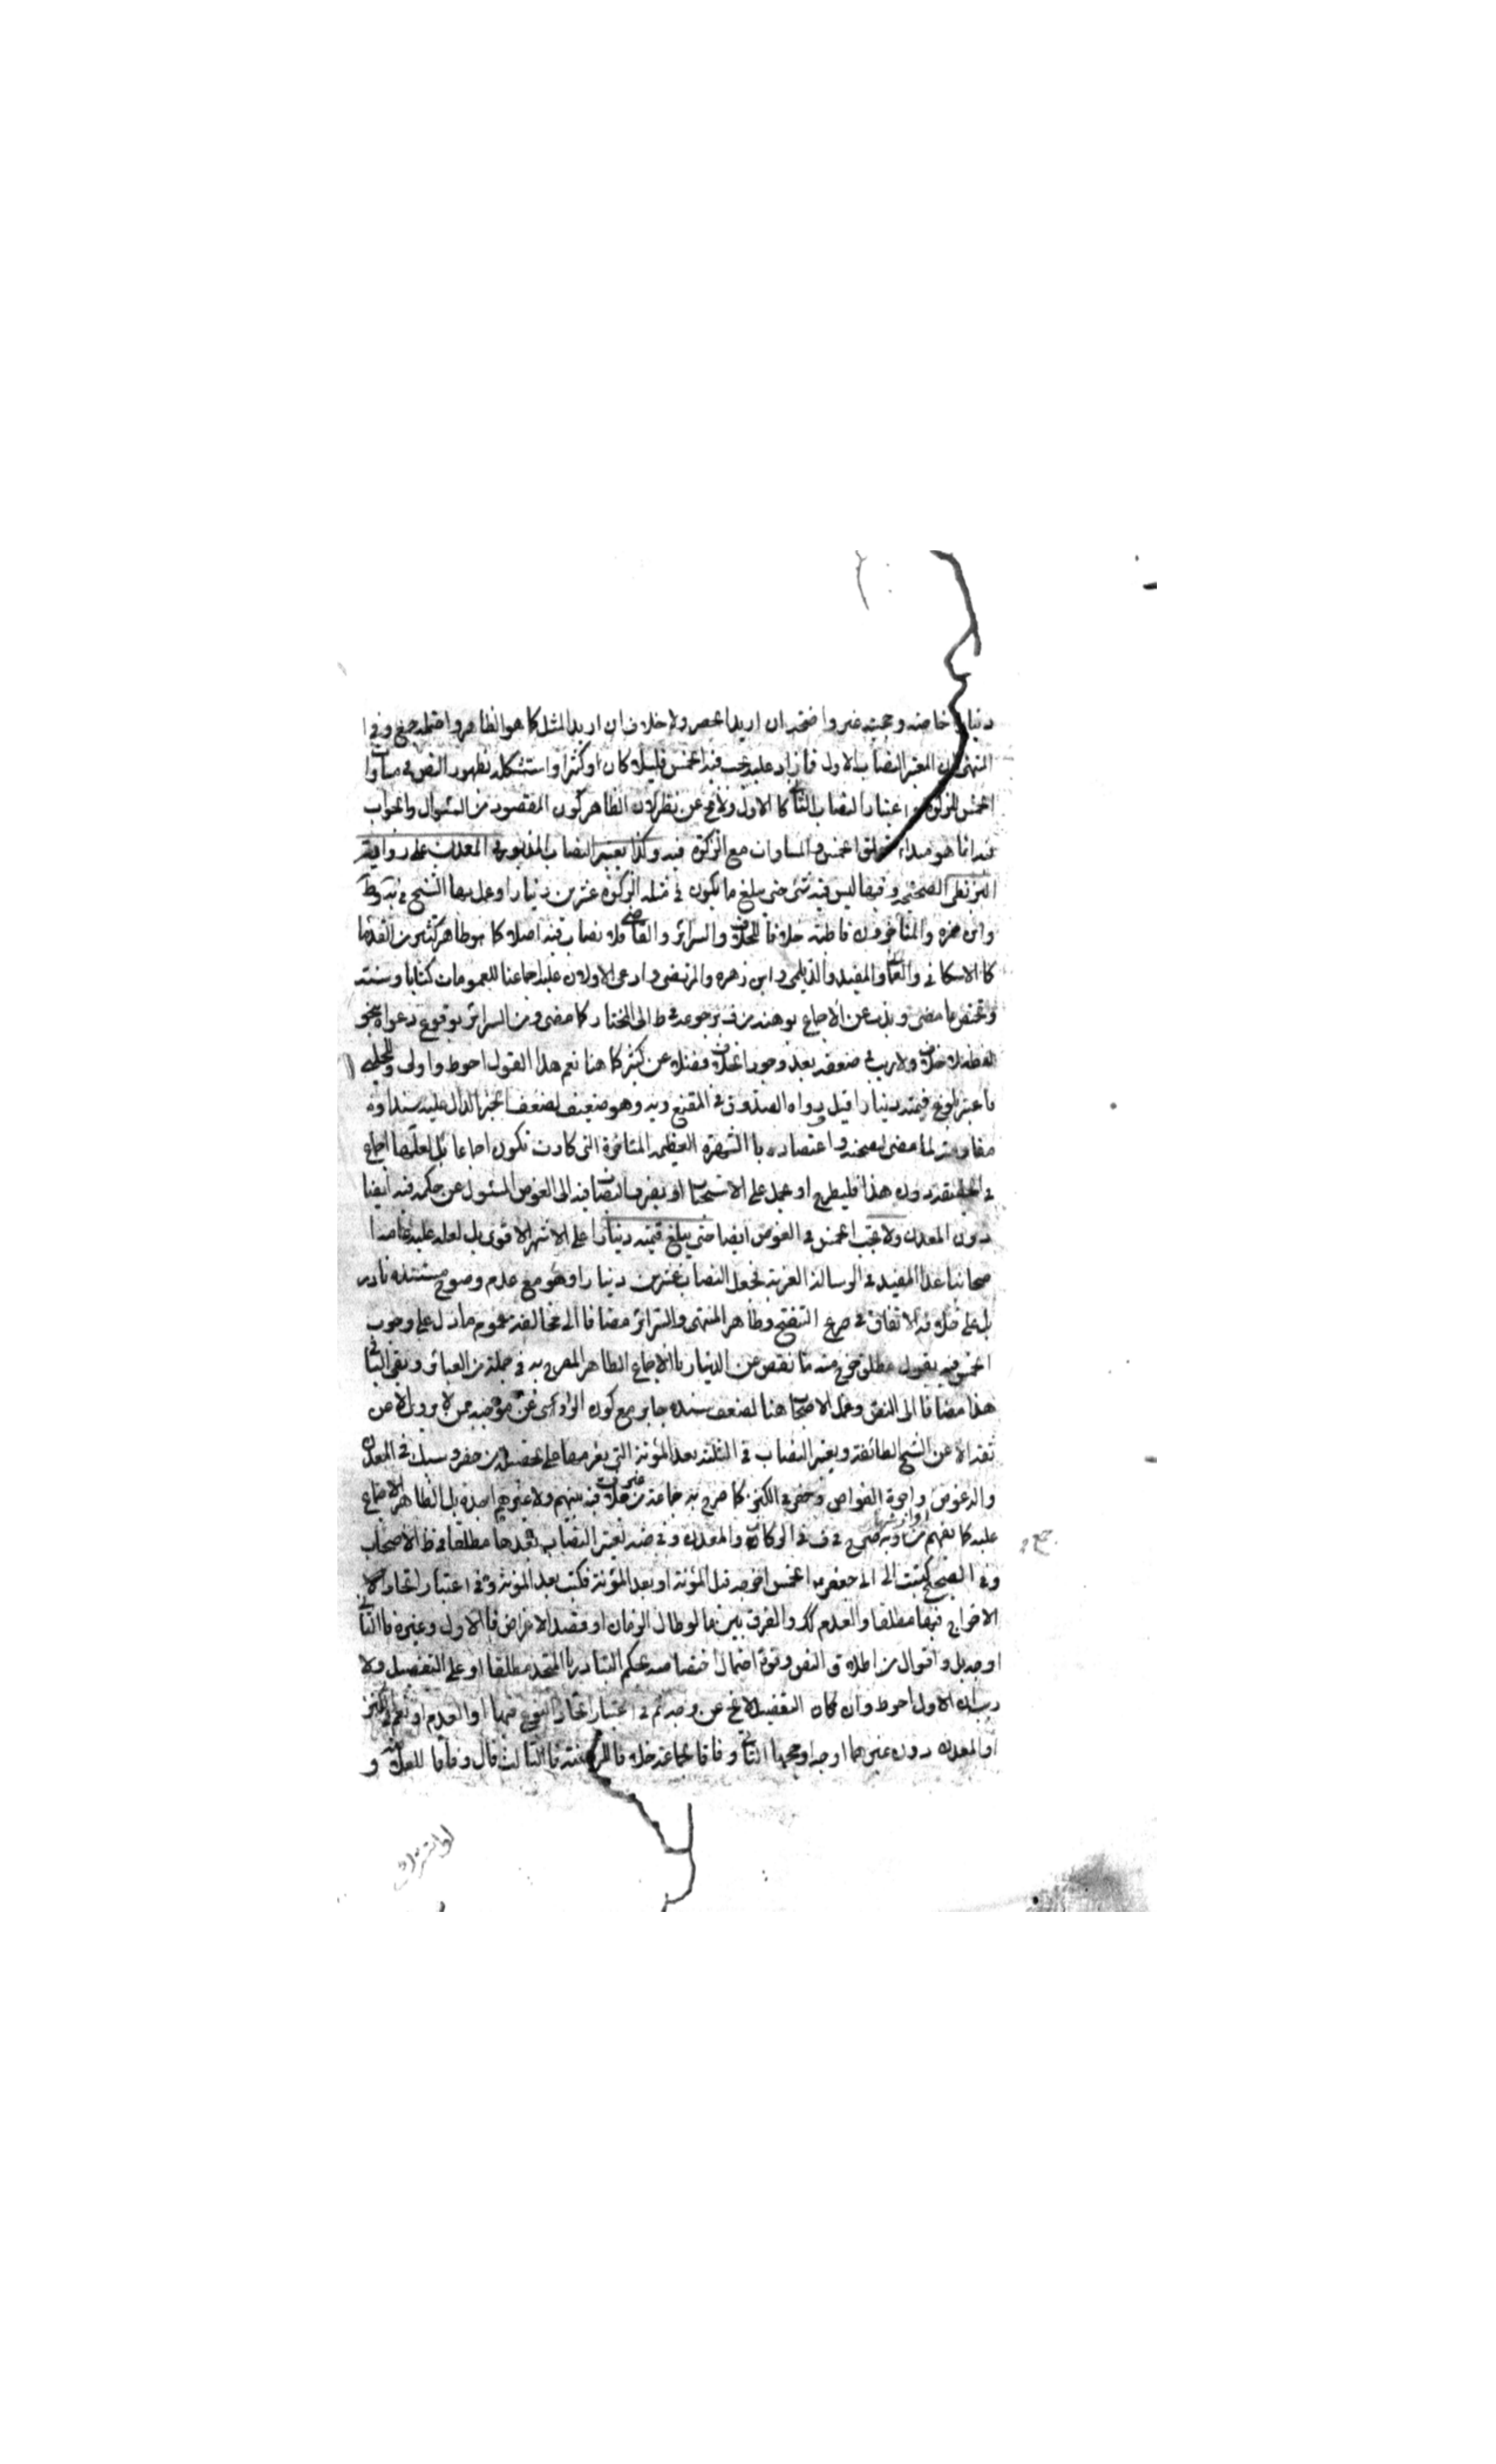 دينارا خاصة وحجته غير واضحة ان اريد الحصر ولا خلاف ان اريد المثل كما هو الظاهر واحتمله جمع وفي
المنتهى ان المعتبر النصاب الاول فما زاد عليه يجب فيه الخمس قليلا كان او كثيرا واستشكل بظهور النص في مساوا
الخمس للزكوة اعتبار النصاب الثا كالاول ولا يخ عن نظر لان الظاهر كون المقصود من السئوال والجواب
فيه انما هو مبداء تعلق الخمس والمساوات مع الزكوة فيه وكذا يعتبر النصاب المذبور في المعدن على رواية
البزنطى الصحيحة وفيها ليس فيه شئ حتى يبلغ ما يكون في مثله الزكوة عشرين دينارا وعمل بها الشيخ في
وابن حمزه والمتاخرون قاطبة خلافا للخلاف والسرائر والقاضي فلا نصاب فيه اصلا كما هو ظاهر كثير من القدما
كالاسكافي والعما والمفيد والديلمى وابن زهره والمرتضى وادعى الاولان عليه اجماعنا للعمومات كتابا وسنة
وتخص بما مضى ويذب عن الاجماع بوهنه من ف برجوعه في ط الى المختار كما مضى ومن السرائر بوقوع دعواه بنحو
لفظة لا خلاف ولا ريب في ضعفه بعد وجود الخلاف فضلا عن كثير كما هنا نعم هذا القول احوط واولى وللحلبي
فاعتبر بلوغ قيمته دينارا قيل ورواه الصدوق في المقنع ويه وهو ضعيف لضعف الخبر الدال عليه سندا وه
مقاومة لما مضى لصحته واعتضاده بالشهرة العظيمة المتاخرة التي كادت تكون اجماعا بل لعلها اجماع
في الحقيقة دون هذا فليطرح او يحمل على الاستحباب او بصرف النصاب فيه الى الغوص المسئول عن حكمه فيه ايضا
دون المعدن ولا يجب الخمس في الغوص ايضا حتى يبلغ قيمته دينارا على الاشهر الاقوى بل لعله عليه عامة
اصحابنا عدا المفيد في الرسالة الغرية فجعل النصاب عشرين دينارا وهو مع عدم وضوح مستنده نادر
بل على خلافه الاتفاق في صريح التنقيح وظاهر المنتهى والسرائر مضافا الى مخالفته عموم ما دل على وجوب
الخمس فيه بقول مطلق خرج منه ما نقص عن الدينار بالاجماع الظاهر المصرح به في جملة من العبائر وبقى الباقي
هذا مضافا الى النص وعمل الاصحاب هنا لضعف سنده جابر مع كون الراوى عن موجبه ممن لا يروى الا عن
ثقة الا عن الشيخ الطائفة ويعتبر النصاب في الثلثة بعد المؤنة التي يغرمها على تحصيله من حفر وسبك في المعدن
والة غوص واجرة الغواص وحفر في الكنز كما صرح به جماعة من غير خلاف فيه بينهم ولا غيرهم اجده بل الظاهر الاجماع
عليه كما يفهم من وبه صرح في ف في الركاز والمعدن وفي ضه يعتبر النصاب بعدها مطلقا في ظ الاصحاب
وفي الصحيح كتبت الى ابى جعفر ع الخمس اخرجه قبل المؤنة او بعد المؤنة فكتب بعد المؤنة وفي اعتبار اتحاد
الاخراج فيها مطلقا والعدم كك والفرق بين ما لو طال الزمان او قصد الاعراض فالاول وغيره فالثاني
اوجه بل واقوال من اطلاق النص وقوة احتمال اختصاصه بحكم التبادر بالمتحد مطلقا او على التفصيل ولا
ريب ان الاول احوط وان كان التفصيل لا يخ عن وجه ثم في اعتبار اتحاد النوع فيها او العدم او نعم في الكنز
او المعدن دون غيرهما اوجه اوجهها الثا وفاقا لجماعة خلافا للروضة فالثالث قال وفاقا للعلامة و